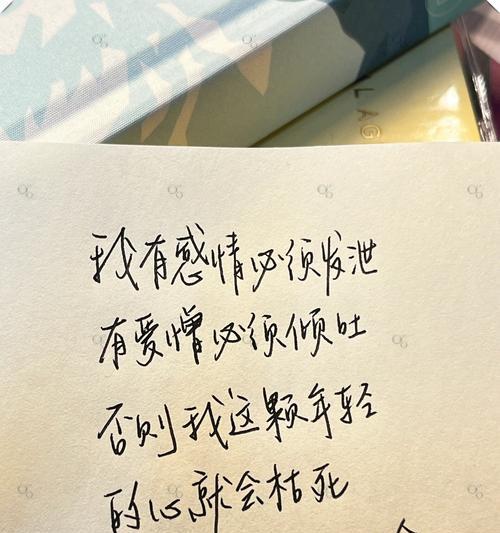 LAG
我有感情必须发泄
有爱憎必须倾吐
否则我这颗年轻
的心就会枯死